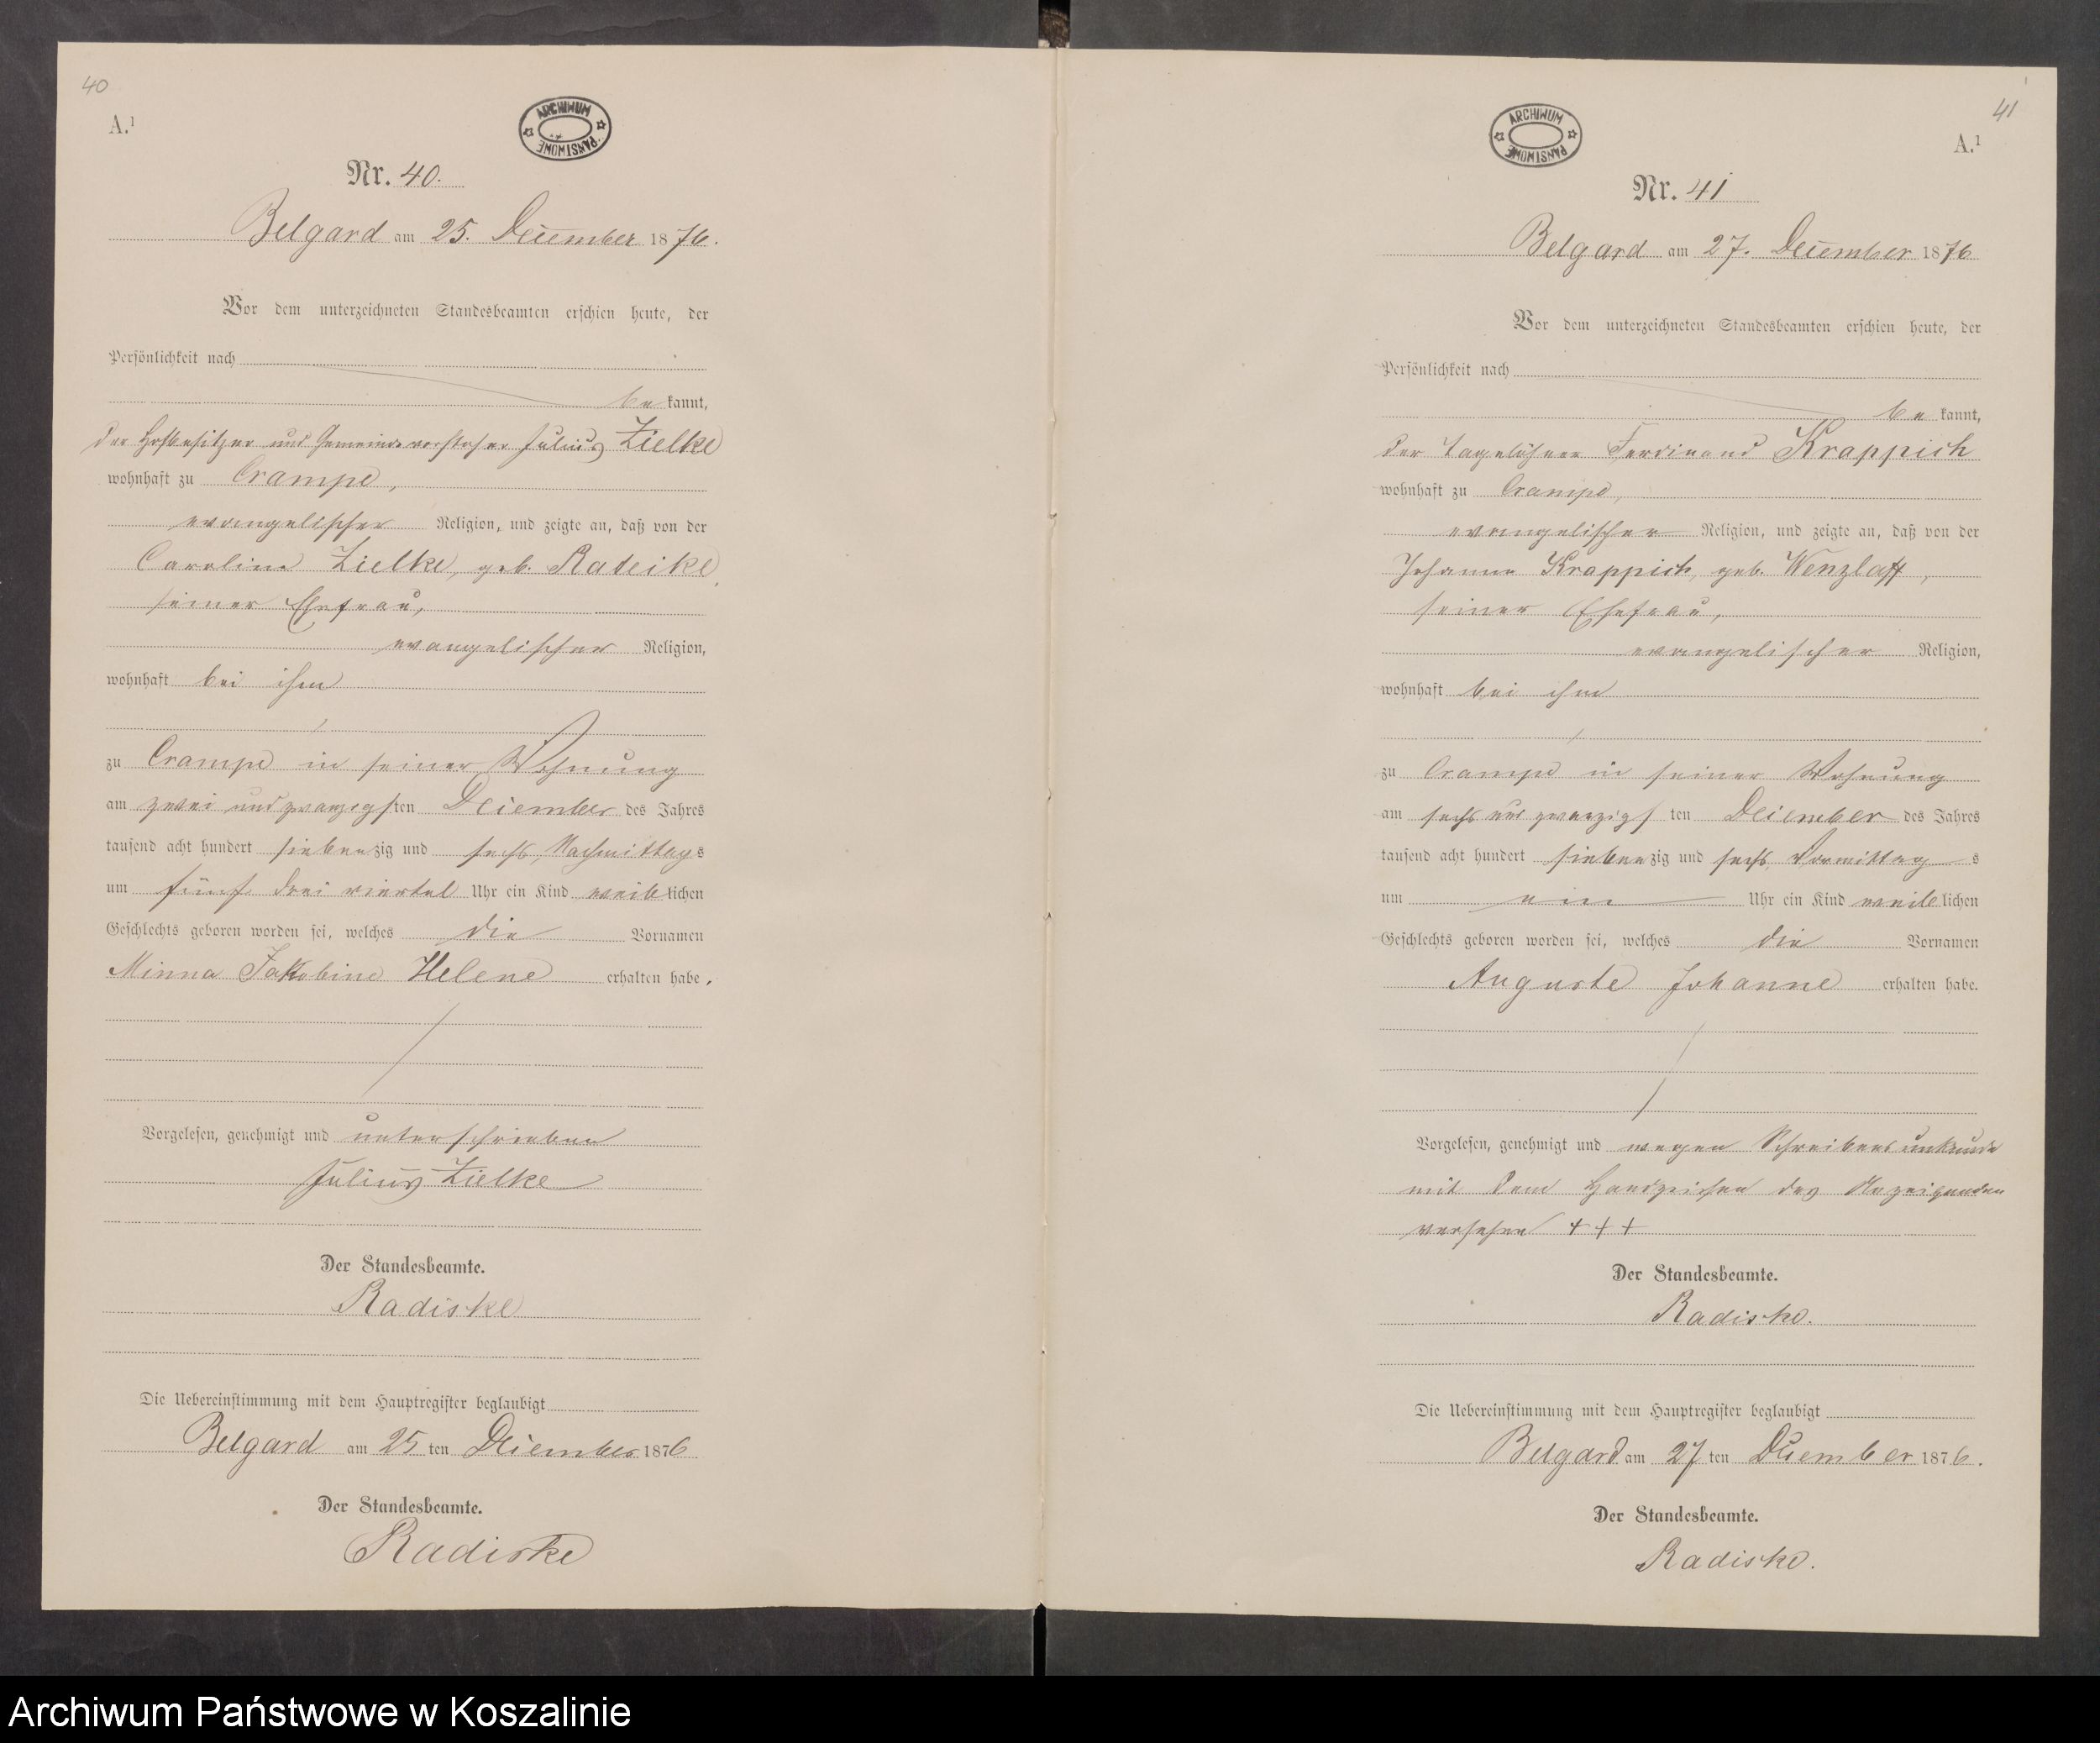 40
A.¹
ARCHIWUM PAŃSTWOWE
Nr. 40.
Belgard am 25. December 1876.
Vor dem unterzeichneten Standesbeamten erschien heute, der
Persönlichkeit nach
be kannt,
der Hofbesitzer und Gemeindevorsteher Julius Zielke
wohnhaft zu Crampe,
evangelischer Religion, und zeigte an, daß von der
Caroline Zielke, geb. Radeike,
seiner Ehefrau,
evangelischer Religion,
wohnhaft bei ihm
zu Crampe in seiner Wohnung
am zwei und zwanzigsten December des Jahres
tausend acht hundert siebenzig und sechs, Nachmittags
um fünf drei viertel Uhr ein Kind weiblichen
Geschlechts geboren worden sei, welches die Vornamen
Minna Jakobine Helene erhalten habe.
Vorgelesen, genehmigt und unterschrieben
Julius Zielke
Der Standesbeamte.
Radiske
Die Uebereinstimmung mit dem Hauptregister beglaubigt
Belgard am 25 ten December 1876
Der Standesbeamte.
Radiske
41
A.¹
ARCHIWUM PAŃSTWOWE
Nr. 41
Belgard am 27. December 1876
Vor dem unterzeichneten Standesbeamten erschien heute, der
Persönlichkeit nach
be kannt,
der Tagelöhner Ferdinand Krappich
wohnhaft zu Crampe,
evangelischer Religion, und zeigte an, daß von der
Johanne Krappich, geb. Wenzlaff,
seiner Ehefrau,
evangelischer Religion,
wohnhaft bei ihm
zu Crampe in seiner Wohnung
am sechs und zwanzigs ten December des Jahres
tausend acht hundert siebenzig und sechs, Vormittags
um ein Uhr ein Kind weiblichen
Geschlechts geboren worden sei, welches die Vornamen
Auguste Johanne erhalten habe.
Vorgelesen, genehmigt und wegen Schreibensunkunde
mit dem Handzeichen des Anzeigenden
versehen + + +
Der Standesbeamte.
Radiske.
Die Uebereinstimmung mit dem Hauptregister beglaubigt
Belgard am 27 ten December 1876.
Der Standesbeamte.
Radiske.
Archiwum Państwowe w Koszalinie